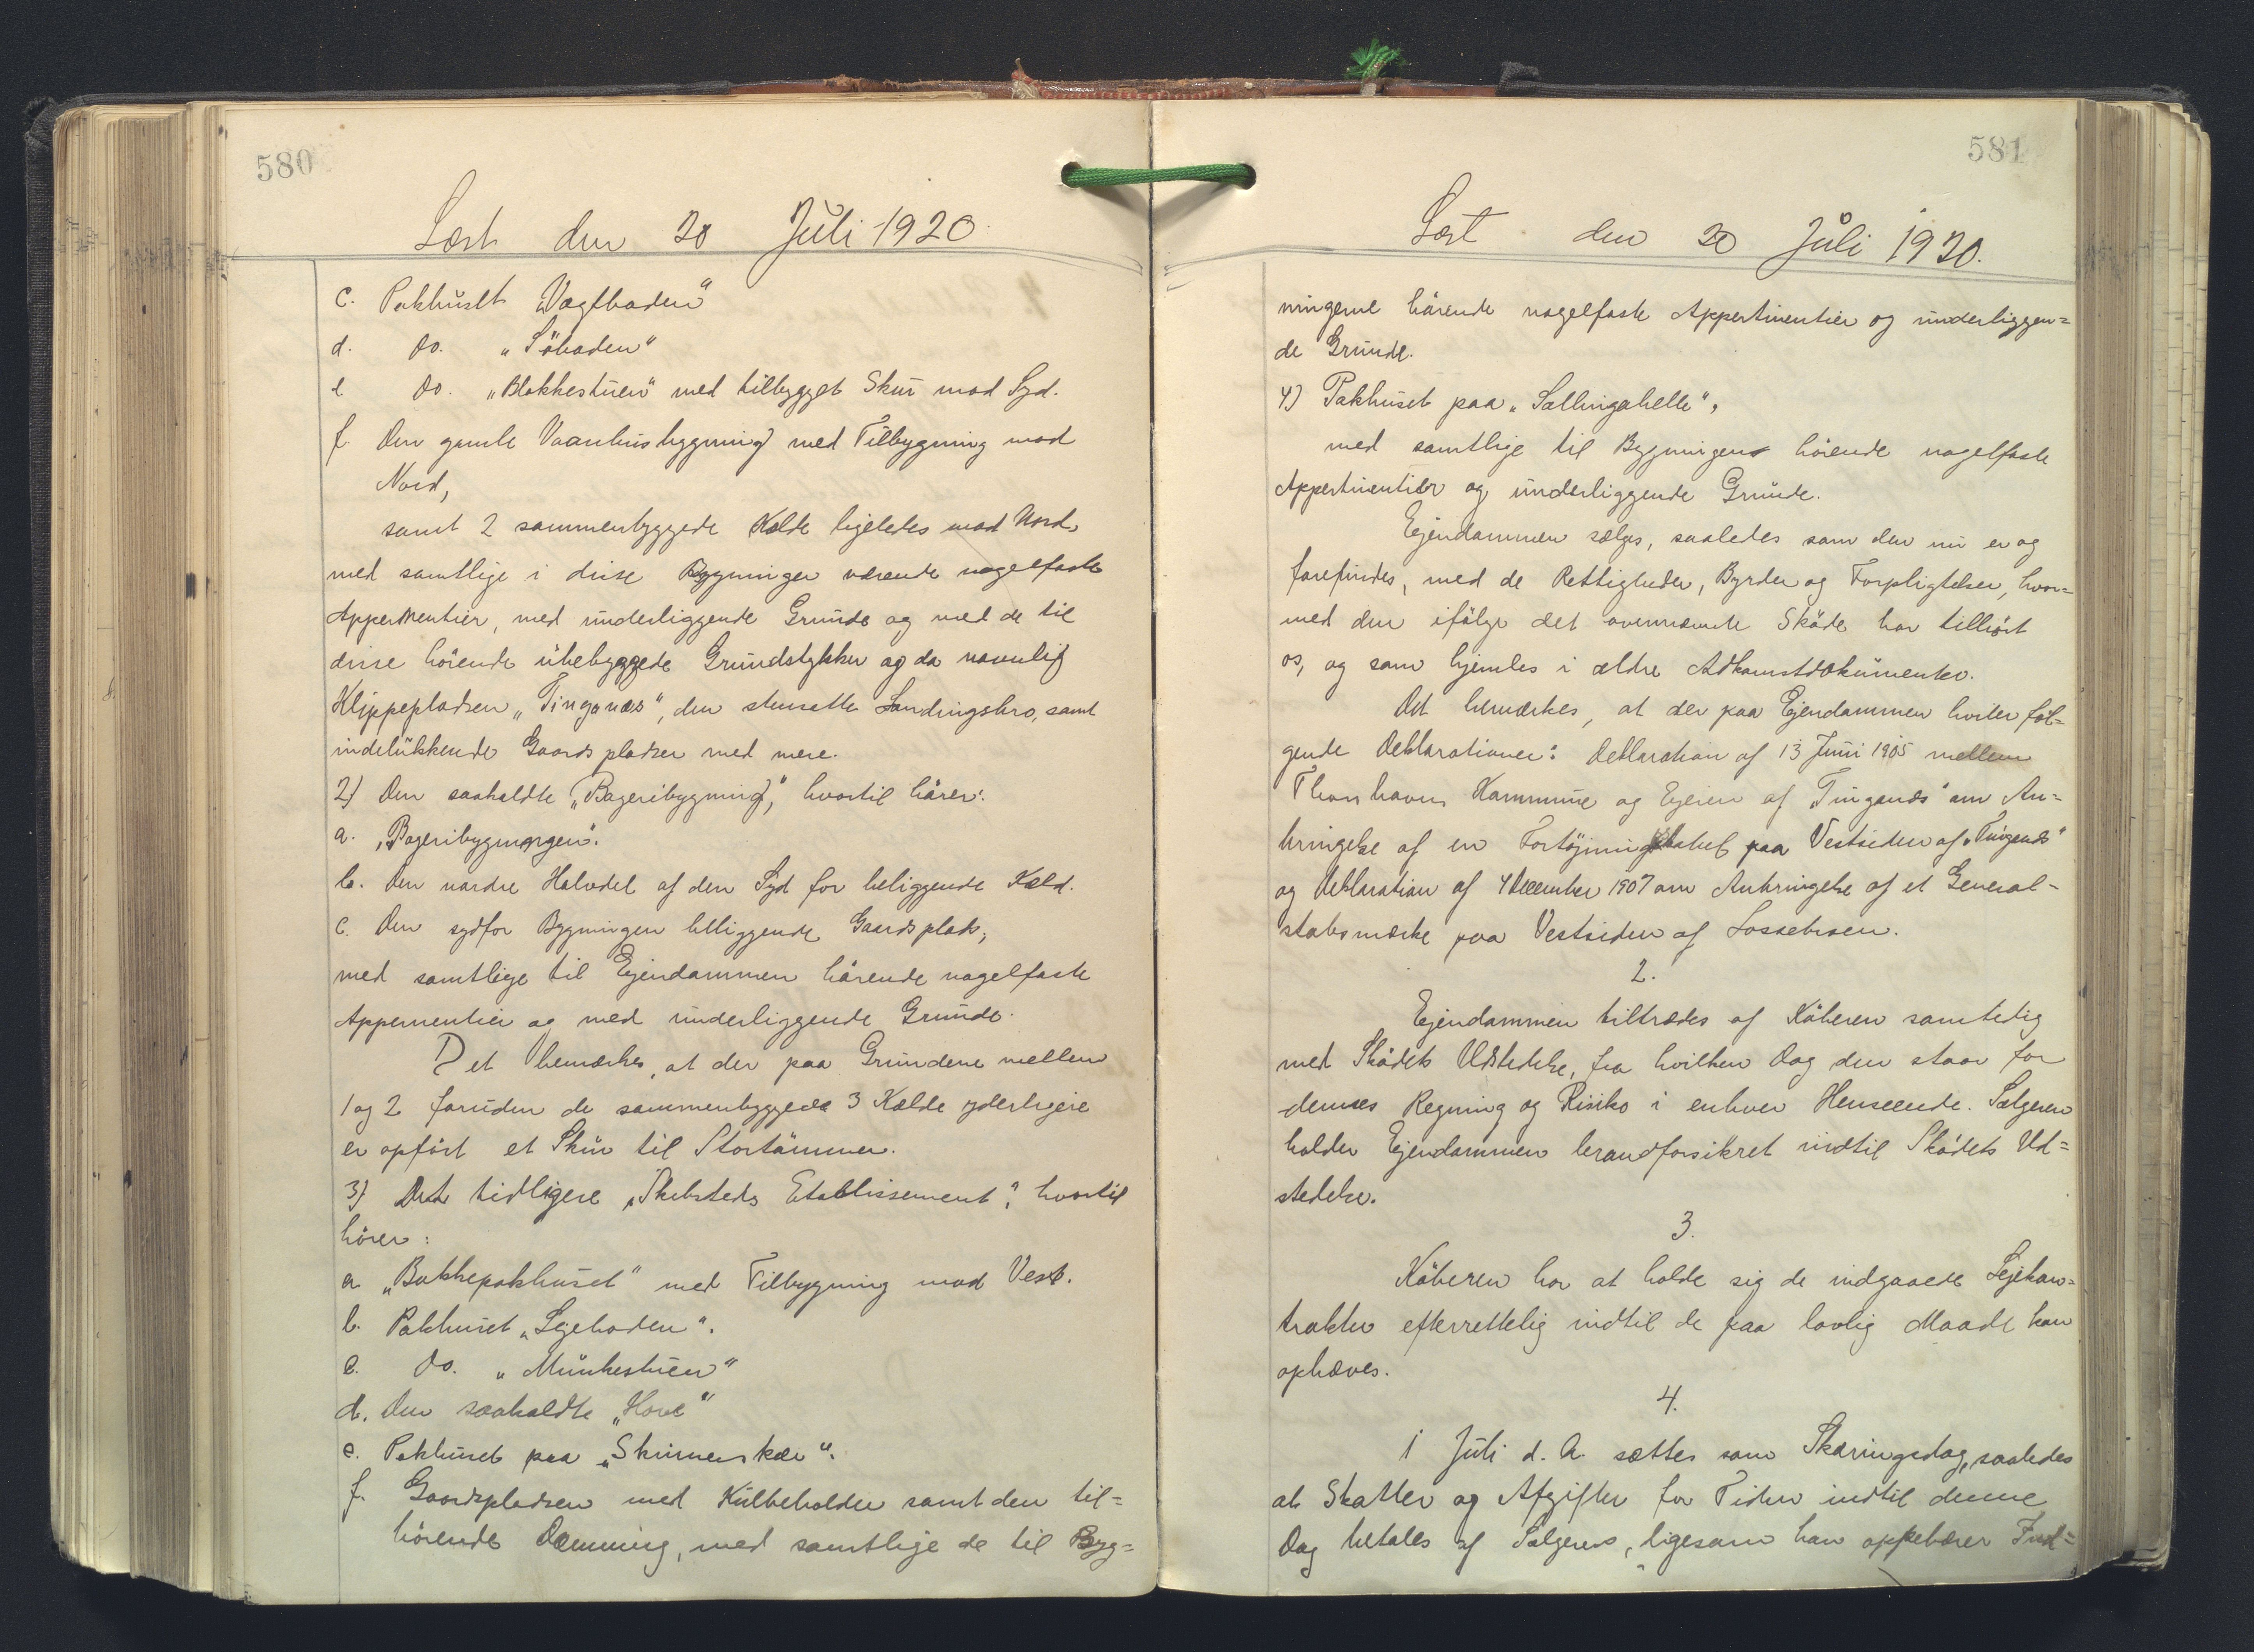 580
Læst den 20 Juli 1920.
c. Pakhuset „Vagtboden"
d. Do. „Söboden"
e Do. „Blokkestuen" med tilbygget Skur mod Syd.
f. Den gamle Vaanhusbygning med Tilbygning mod
Nord,
samt 2 sammenbyggede Kælde ligeledes mod Nord,
med samtlige i disse Bygninger værende nagelfaste
Appertinentier, med underliggende Grunde og med de til
disse hörende ubebyggede Grundstykker og da navnlig
Klippepladsen „Tinganæs", den stensatte Landingsbro, samt
indelukkende Gaardspladser med mere.
2) Den saakaldte „Bageribygning," hvortil hörer:
a. „Bageribygningen".
b. Den nordre Halvdel af den Syd for beliggende Kæld.
c. Den sydfor Bygningen beliggende Gaardsplads,
med samtlige til Ejendommen hörende nagelfaste
Appernentier og med underliggende Grunde.
Det bemærkes, at der paa Grundene mellem
1 og 2 foruden de sammenbyggede 3 Kælde yderligere
er opført et Skur til Stortömmer.
3) Det tidligere „Skibsteds Etablissement", hvortil
hörer:
a „Bakkepakhuset" med Tilbygning mod Vest.
b. Pakhuset „Lejeboden".
c. Do. „Munkestuen"
d. Den saakaldte „Hove"
e. Pakhuset paa „Skinnerskær".
f. Gaardspladsen med Kulbeholder samt den til=
hörende Dæmning, med samtlige de til Byg=
581
Læst den 20 Juli 1920.
ningerne hörende nagelfaste Appertinentier og underliggen=
de Grunde.
4) Pakhuset paa „Sallingahelle",
med samtlige til Bygningen hörende nagelfaste
Appertinentier og underliggende Grunde.
Ejendommen sælges, saaledes som den nu er og
forefindes, med de Rettigheder, Byrder og Forpligtelser, hvor=
med den ifölge det ovennævnte Sköde har tilhört
os, og som hjemles i ældre Adkomstdokumenter.
Det bemærkes, at der paa Ejendommen hviler föl=
gende Deklarationer: Deklaration af 13 Juni 1905 mellem
Thorshavns Kommune og Ejeren af „Tinganæs" om An=
bringelse af en Fortöjnings paa Vestsiden af „Tinganæs"
og Deklaration af 4 December 1907 om Anbringelse af et General-
stabsmærke paa Vestsiden af Lossebroen.
2.
Ejendommen tiltrædes af Köberen samtidig
med Sködets Udstedelse, fra hvilken Dag den staar for
dennes Regning og Risiko i enhver Henseende. Sælgeren
holder Ejendommen brandforsikret indtil Sködets Ud=
stedelse.
3.
Köberen har at holde sig de indgaaede Lejekon=
trakter efterrettelig indtil de paa lovlig Maade kan
ophæves.
4.
1 Juli d. A. sættes som Skæringsdag, saaledes
at Skatter og Afgifter for Tiden indtil denne
Dag betales af Sælgeren, ligesom han oppebærer Ind=